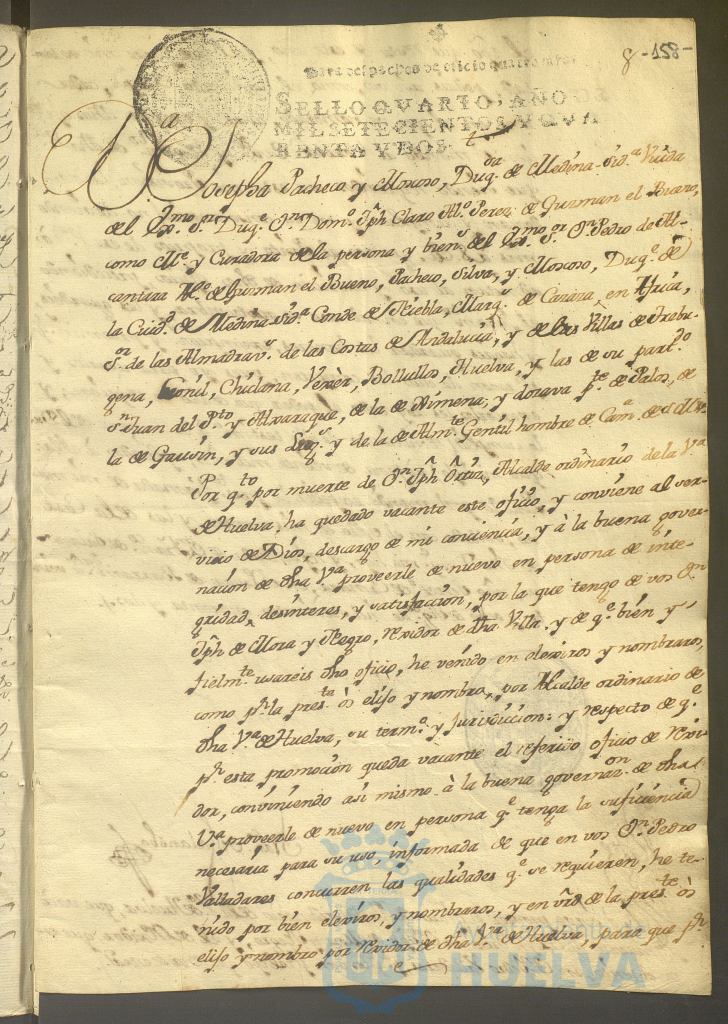 8-158-
Para despachos de oficio quatro mrs.
SELLO QVARTO, AÑO DE
MIL SETECIENTOS Y QVA
RENTA Y DOS.
Dª Josepha Pacheco y Moscoso, Duqª de Medina Sidª Viuda
del Exmo Sr Duqe Dn Domo Jph Claro Alo Perez de Guzman el Bueno,
como Me y Curadora de la persona y biens del Exmo Sor Dn Pedro de Al-
cantara Alo de Guzman el Bueno, Pacheco, Silva, y Moscoso, Duqe de
la Ciud de Medina Sidª Conde de Niebla, Marqs de Cazaza en Africa,
Sor de las Almadravs de las Costas de Andalucia, y de las Villas de Trabu-
gena, Conil, Chiclana, Vexèr, Bollullos, Huelva, y las de su partdo
Sn Juan del Pto y Alxaraque, de la de Ximena, y dozava pte de Palos, de
la de Gausin, y sus Lugs y de la de Almte Gentil hombre de Camª de S. M. &
Por qto por muerte de Dn Jph Ortiz, Alcalde ordinario de la Vª
de Huelva, ha quedado vacante este oficio, y conviene al ser-
vicio de Dios, descargo de mi conciencia, y à la buena gover-
nacion de dha Vª proveerle de nuevo en persona de inte-
gridad, desinteres, y satisfacion, por la que tengo de vos Dn
Jph de Mora y Negro, Rexidor de dha Villa, y de qe bien y
fielmte usareis dho oficio, he venido en elexiros y nombraros,
como pr la preste òs elijo y nombro, por Alcalde ordinario de
dha Vª de Huelva, su termo y jurisdiccion: y respecto de qe
pr esta promocion queda vacante el referido oficio de Rexi-
dor, conviniendo asi mismo à la buena governaon de dha
Vª proveerle de nuevo en persona qe tenga la suficiencia
necesaria para su uso, informada de que en vos Dn Pedro
Valladares concurren las qualidades qe se requieren, he te-
nido por bien elexiros, y nombraros, y en vrd de la preste òs
elijo y nombro por Rexidor de dha Vª de Huelva, para que pr
HUELVA